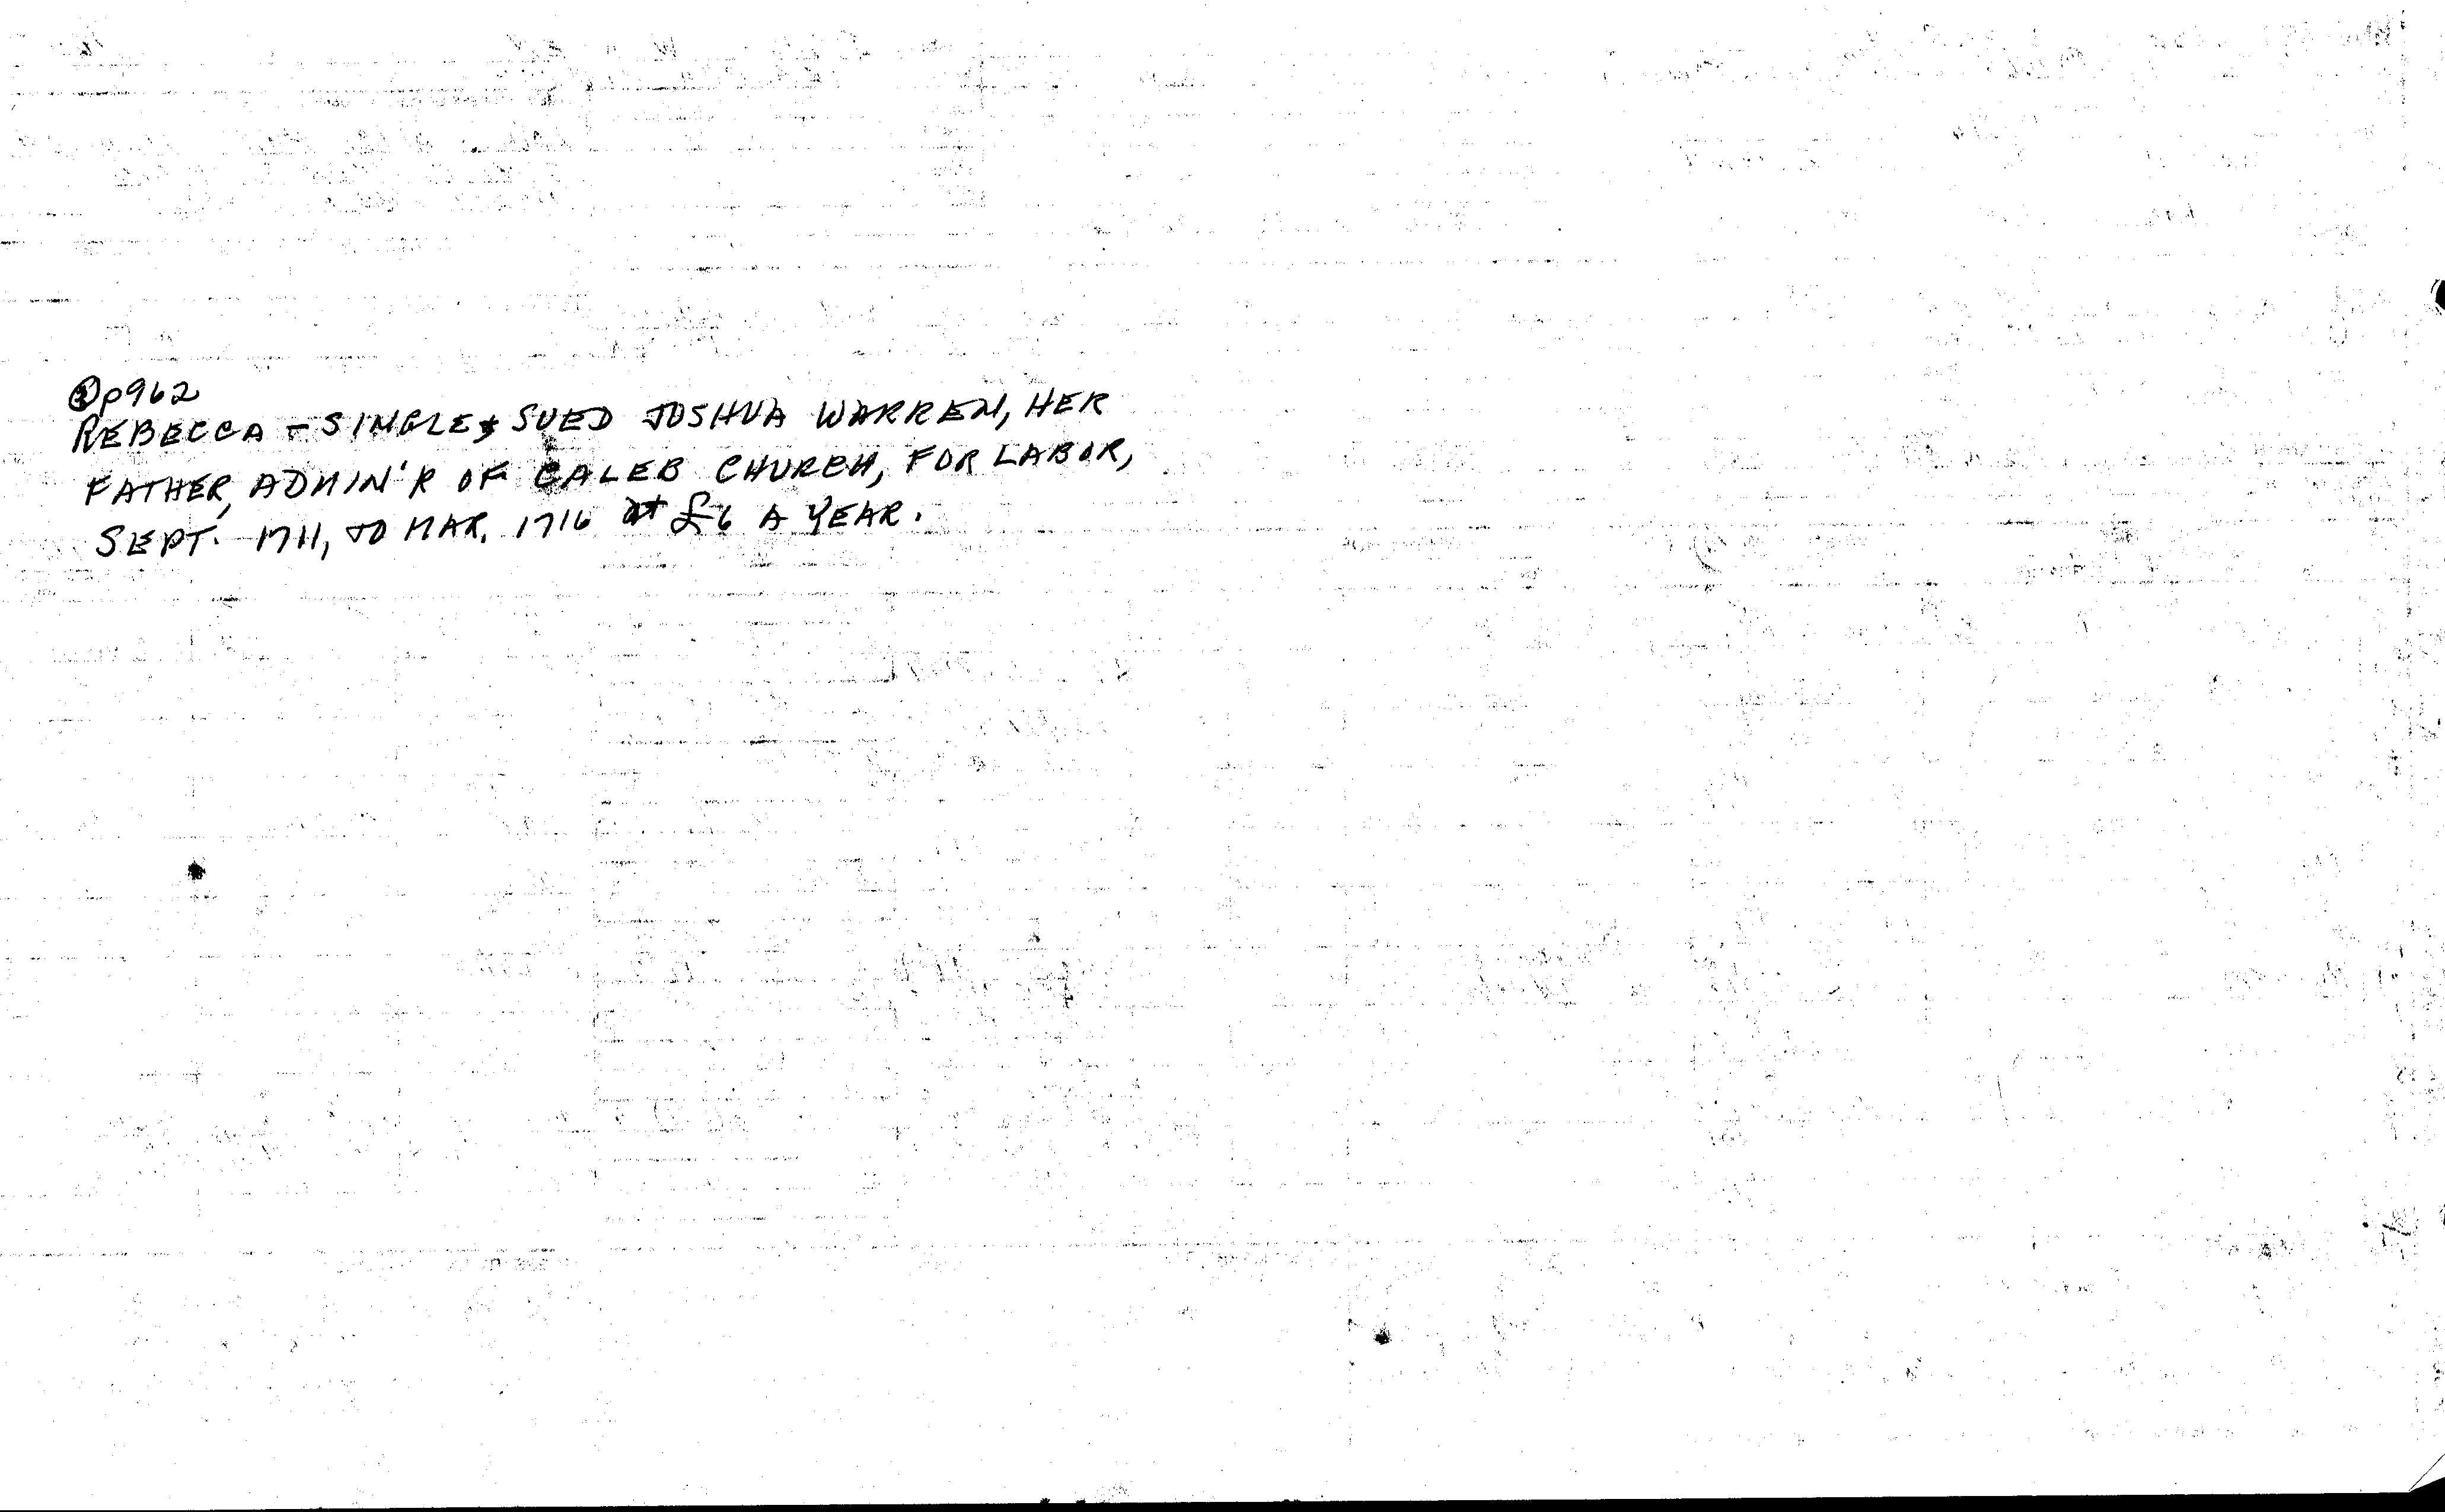 ③p962
REBECCA - SINGLE & SUED JOSHUA WARREN, HER
FATHER, ADMIN'R OF CALEB CHURCH, FOR LABOR,
SEPT. 1711, TO MAR. 1716 at £6 A YEAR.